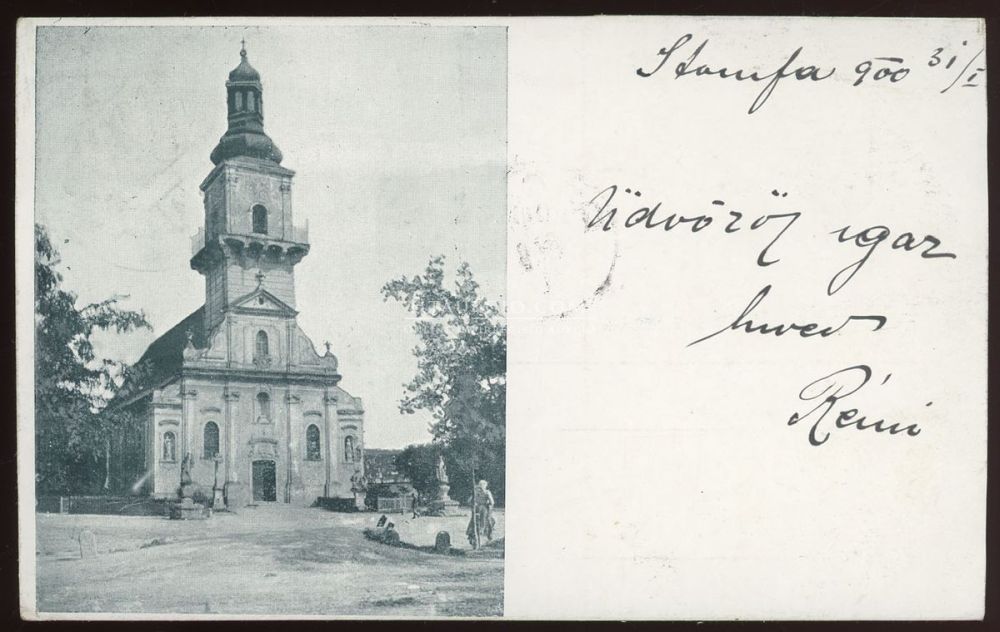 Stomfa 900 31/I
Üdvözöl igaz
híved
Rémi